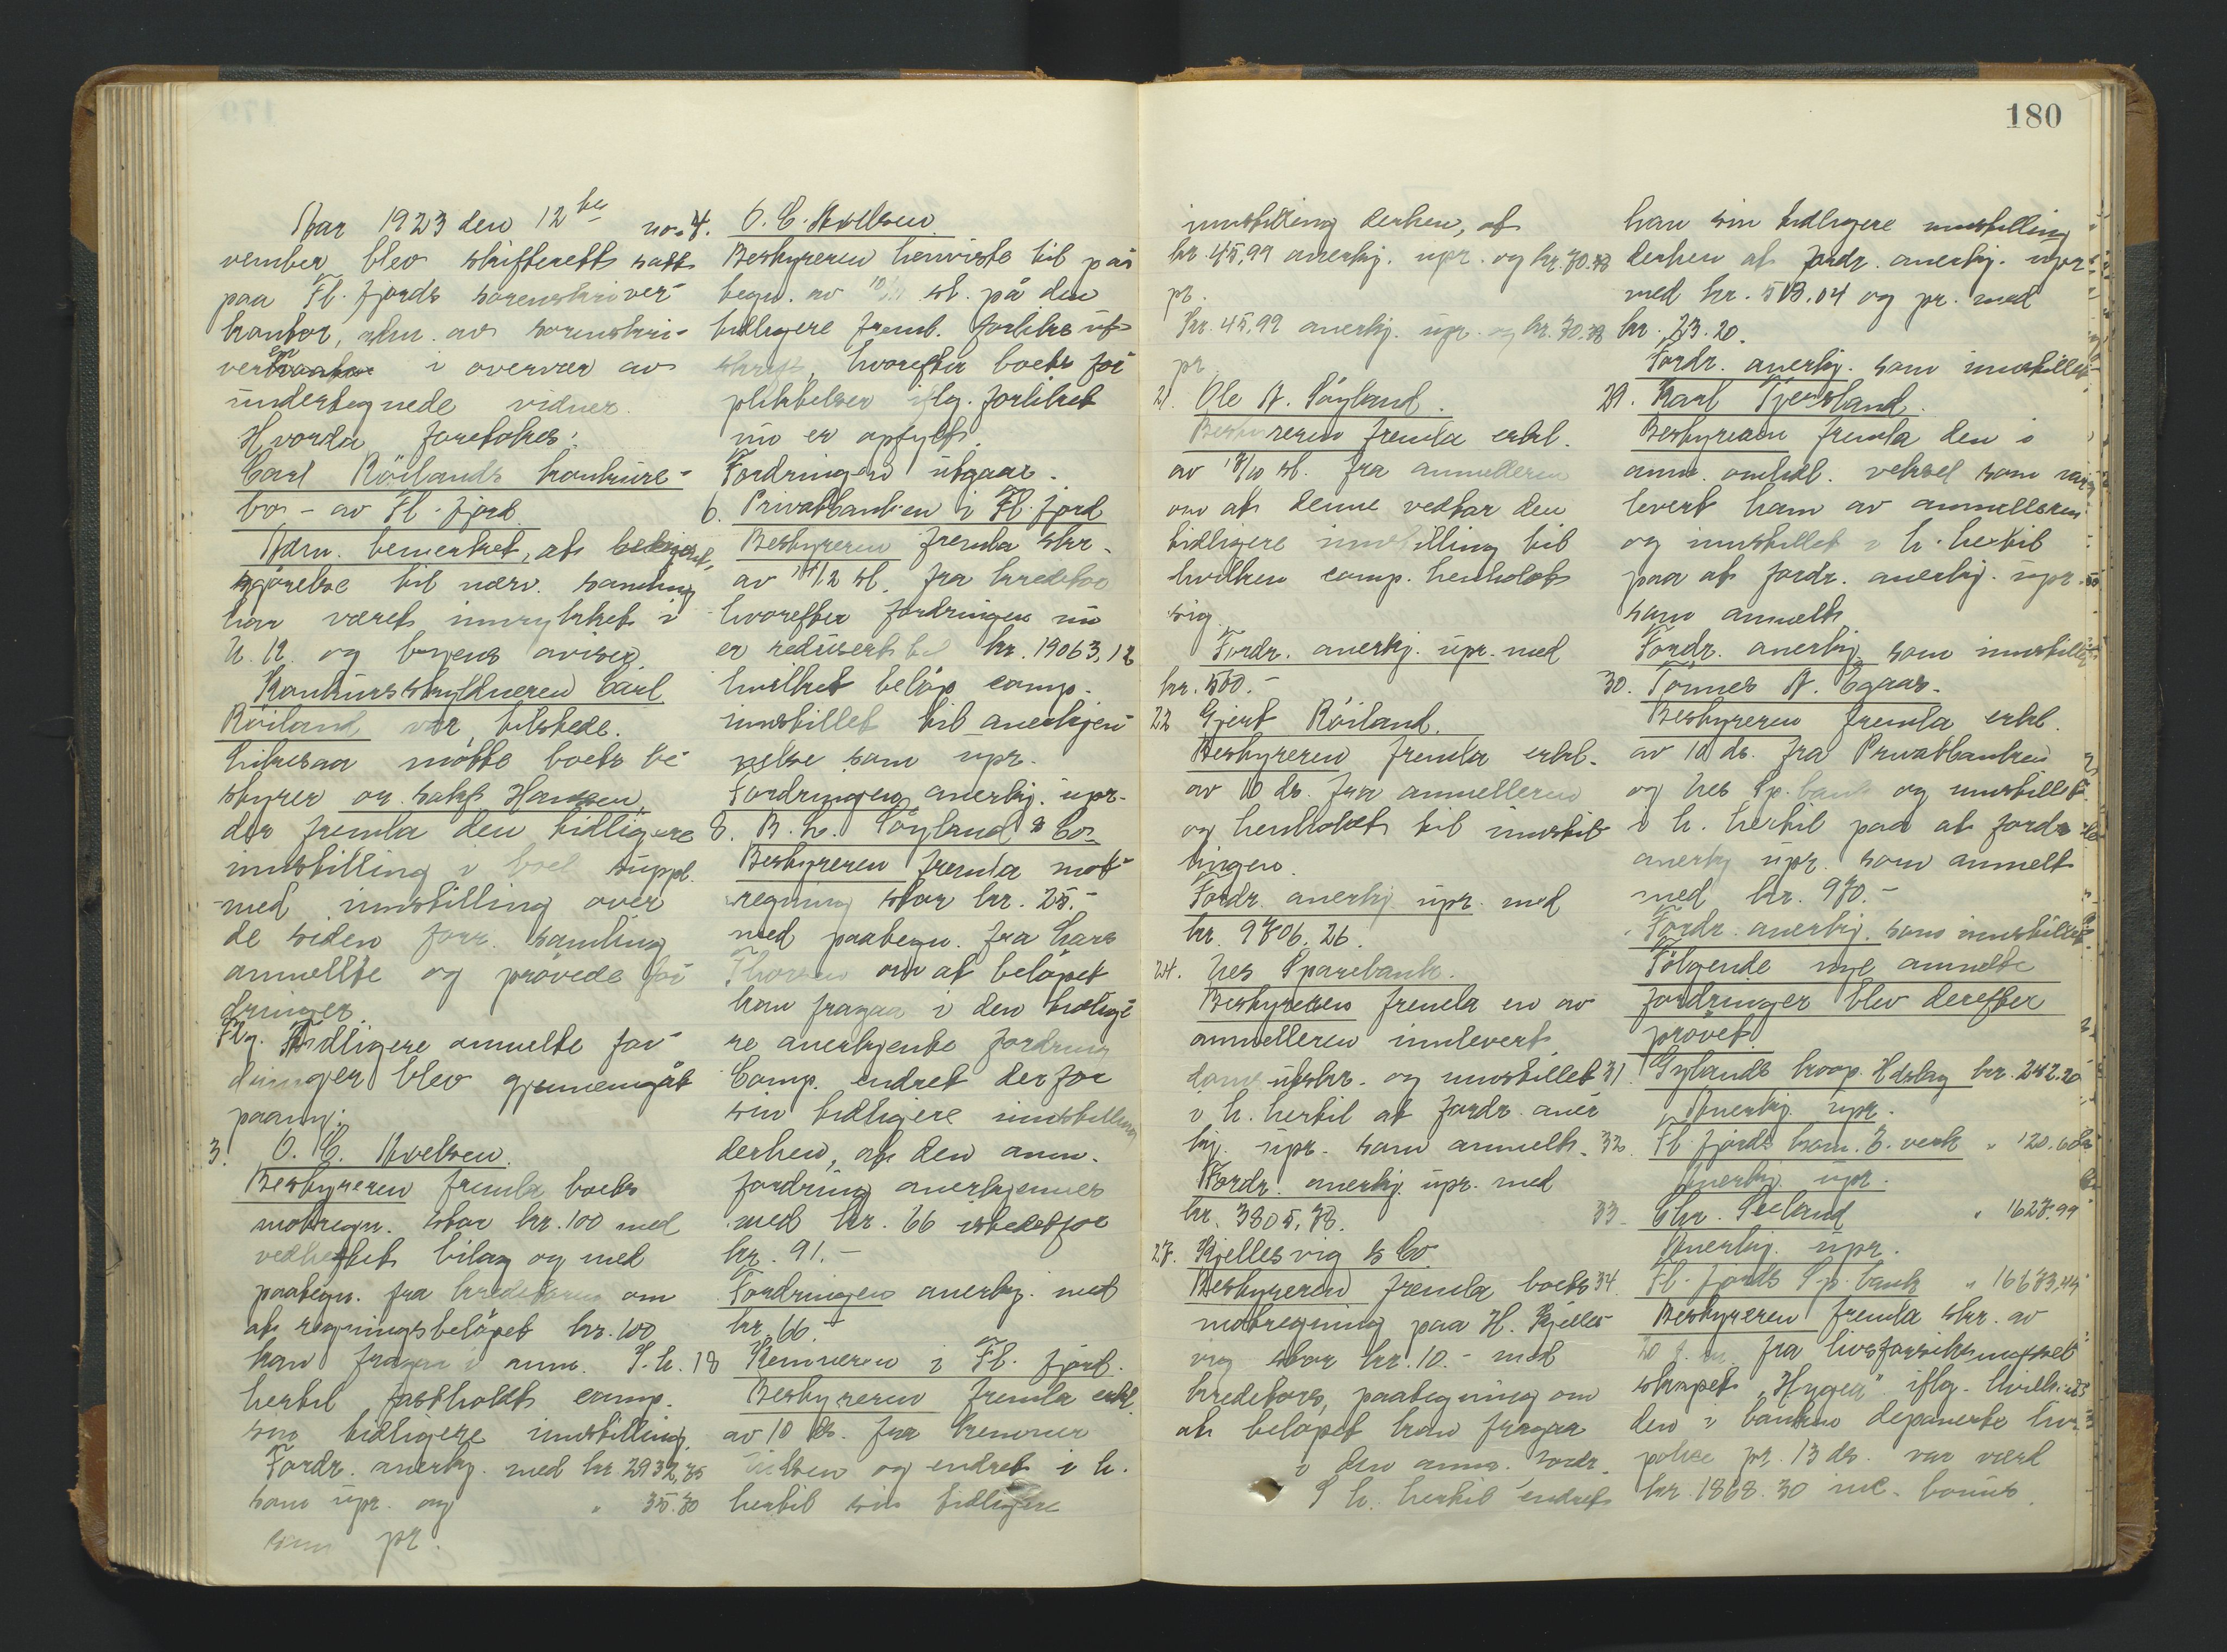 180
Aar 1923 den 12te no-
vember blev skifterett satt
paa Fl. fjords sorenskriver-
kontor, adm. av sorenskri-
veren i overvær av
undertegnede vidner.
Hvorda foretokes:
Carl Röilands konkurs-
bo - av Fl. fjord
Adm. bemerket, at bekjent-
gjørelse til nærv. samling
har været innrykket i
N. K. og byens aviser.
Konkursskyldneren Carl
Röiland var tilstede.
Likesaa møtte boets be
styrer or. sakf. Hanssen,
der fremla den tidligere
innstilling i boet suppl.
med innstilling over
de siden forr. samling
anmeldte og prövede for
dringer.
Flg. tidligere anmeldte for-
dringer blev gjennemgåt
paany:
3. O. C. Axelsen.
Bestyreren fremla boets
motregn. stor kr. 100 med
vedheftet bilag og med
paategn. fra kreditoren om
at regningsbeløpet kr. 100
kan fragaa i anm. I h.
hertil fastholdt comp.
sin tidligere innstilling.
Fordr. anerkj. med kr 2932,75
som upr. og " 35.30
som pr.
4. O. C. Axelsen
Bestyreren henviste til på
tegn. av 10/11 sl. på den
tidligere freml. forliks ut-
skrift, hvorefter boets for
pliktelser iflg. forliket
nu er opfylt.
Fordringen utgaar.
6. Privatbanken i Fl. fjord
Bestyreren fremla skr.
av 14/12 sl. fra kreditor
hvorefter fordringen nu
er redusert til kr. 19063,12
hvilket beløp comp.
innstillet til anerkjen
nelse som upr.
Fordringen anerkj. upr.
8. B. L. Söyland & Co.
Bestyreren fremla mot
regning stor kr. 25.-
med paategn. fra Lars
Thorsen om at beløpet
kan fragaa i den tidlige
re anerkjente fordring
Comp. endret derfor
sin tidligere innstilling
derhen, at den anm.
fordring anerkjennes
med kr. 66 istedetfor
kr. 91.-
Fordringen anerkj. med
kr. 66.-
18 Kemneren i Fl. fjord.
Bestyreren fremla erkl.
av 10 ds. fra kemner
og endret i h.
hertil sin tidligere
innstilling derhen, at
kr. 45,99 anerkj. upr. og kr. 70.78
pr.
Kr. 45.99 anerkj. upr. og kr. 70.78
pr
21. Ole A. Söyland.
Bestyreren fremla erkl.
av 17/10 sl. fra anmelderen
om at denne vedtar den
tidligere innstilling til
hvilken comp. henholdt
sig.
Fordr. anerkj. upr. med
kr. 500.-
22 Gjert Röiland.
Bestyreren fremla erkl.
av 10 ds. fra anmelderen
og henholdt til innstil
lingen.
Fordr. anerkj. upr. med
kr. 9706.26.
24. Nes Sparebank.
Bestyreren fremla en av
anmelderen innlevert
doms utskr. og innstillet
i h. hertil at fordr. aner
kj. upr. som anmeldt.
Fordr. anerkj. upr. med
kr. 3805.78.
27. Kjellesvig & Co.
Bestyreren fremla boets
motregning paa H. Kjelles-
vig stor kr. 10.- med
kreditors paategning om
at beløpet kan fragaa
i den anm. fordr.
I h. hertil endret
han sin tidligere innstilling
derhen at fordr. anerkj. upr
med kr. 513.04 og pr. med
kr. 23.20.
Fordr. anerkj. som innstillet
29. Karl Tjersland.
Bestyreren fremla den i
anm. omhdl. veksel som var
levert ham av anmelderen
og innstillet i h. hertil
paa at fordr. anerkj. upr.
som anmeldt
Fordr. anerkj. som innstillet
30. Tönnes A. Egaas.
Bestyreren fremla erkl.
av 10 ds. fra Privatbanken
og Nes Sp. bank og innstillet
i h. hertil paa at fordr
anerkj upr. som anmeldt
med kr. 970.-
Fordr. anerkj. som innstillet.
Følgende nye anmeldte
fordringer blev derefter
prøvet.
31. Gylands koop. Hdslag kr. 242.20
Anerkj. upr.
32. Fl. fjords kom. E. verk " 120.60
Anerkj. upr.
33 Chr. Seeland " 1627.99
Anerkj. upr.
34. Fl. fjords Sp. bank " 16673,44
Bestyreren fremla skr. av
fra livsforsikrings
skapet "Hygea" iflg. hvilket
den i banken deponerte livs
police pr. 13 ds. var værd
kr. 1868.30 incl. bonus.